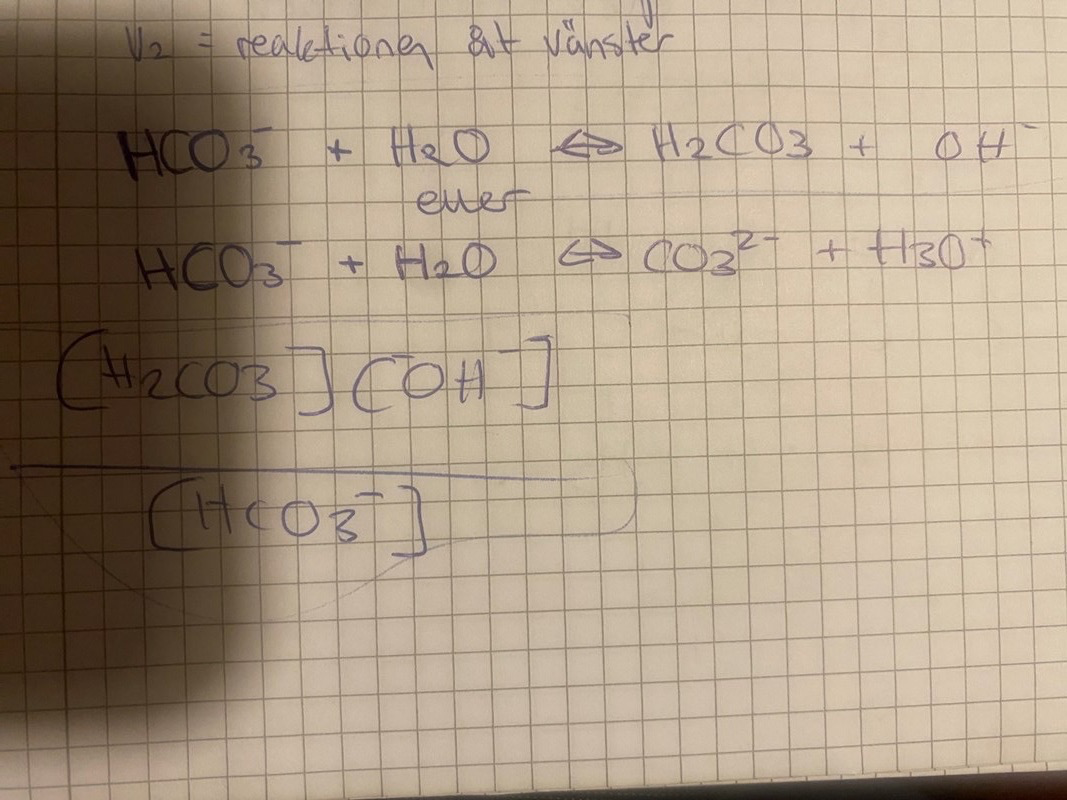 V2 = reaktionen åt vänster
HCO3⁻ + H2O ⇔ H2CO3 + OH⁻
eller
HCO3⁻ + H2O ⇔ CO3²⁻ + H3O⁺
[H2CO3] [OH⁻]
[HCO3⁻]